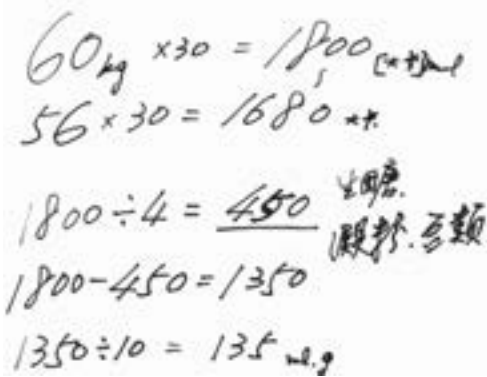 60kg ×30 = 1800 (大卡)ml
56×30 = 1680 大卡
1800÷4 = 450
澱粉、豆類
1800-450=1350
1350÷10 = 135 ml.g